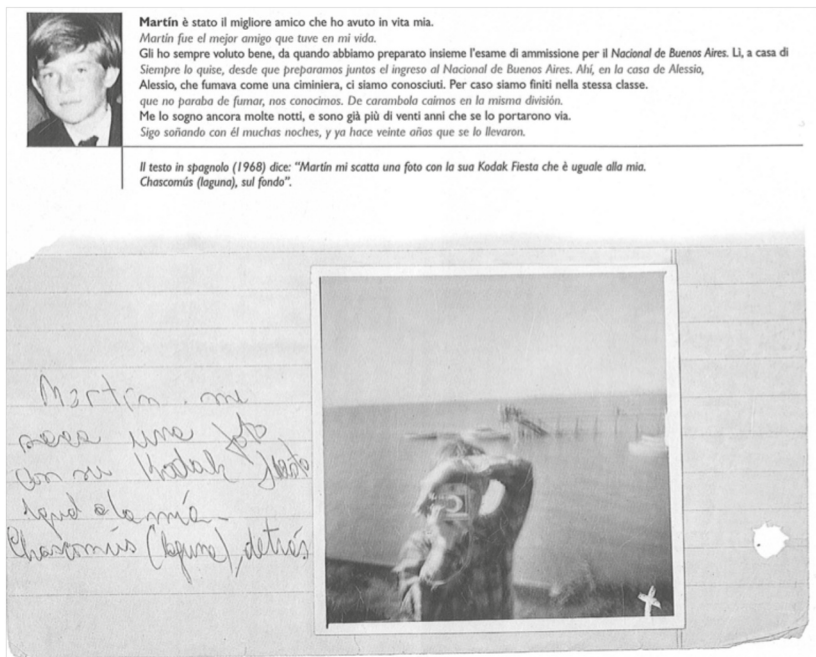 Martín è stato il migliore amico che ho avuto in vita mia.
Martín fue el mejor amigo que tuve en mi vida.
Gli ho sempre voluto bene, da quando abbiamo preparato insieme l'esame di ammissione per il Nacional de Buenos Aires. Lì, a casa di
Siempre lo quise, desde que preparamos juntos el ingreso al Nacional de Buenos Aires. Ahí, en la casa de Alessio,
Alessio, che fumava come una ciminiera, ci siamo conosciuti. Per caso siamo finiti nella stessa classe.
que no paraba de fumar, nos conocimos. De carambola caímos en la misma división.
Me lo sogno ancora molte notti, e sono già più di venti anni che se lo portarono via.
Sigo soñando con él muchas noches, y ya hace veinte años que se lo llevaron.
Il testo in spagnolo (1968) dice: "Martín mi scatta una foto con la sua Kodak Fiesta che è uguale alla mia.
Chascomús (laguna), sul fondo".
Martín me
saca una foto
con su Kodak fiesta
igual a la mía-
Chascomús (laguna), detrás